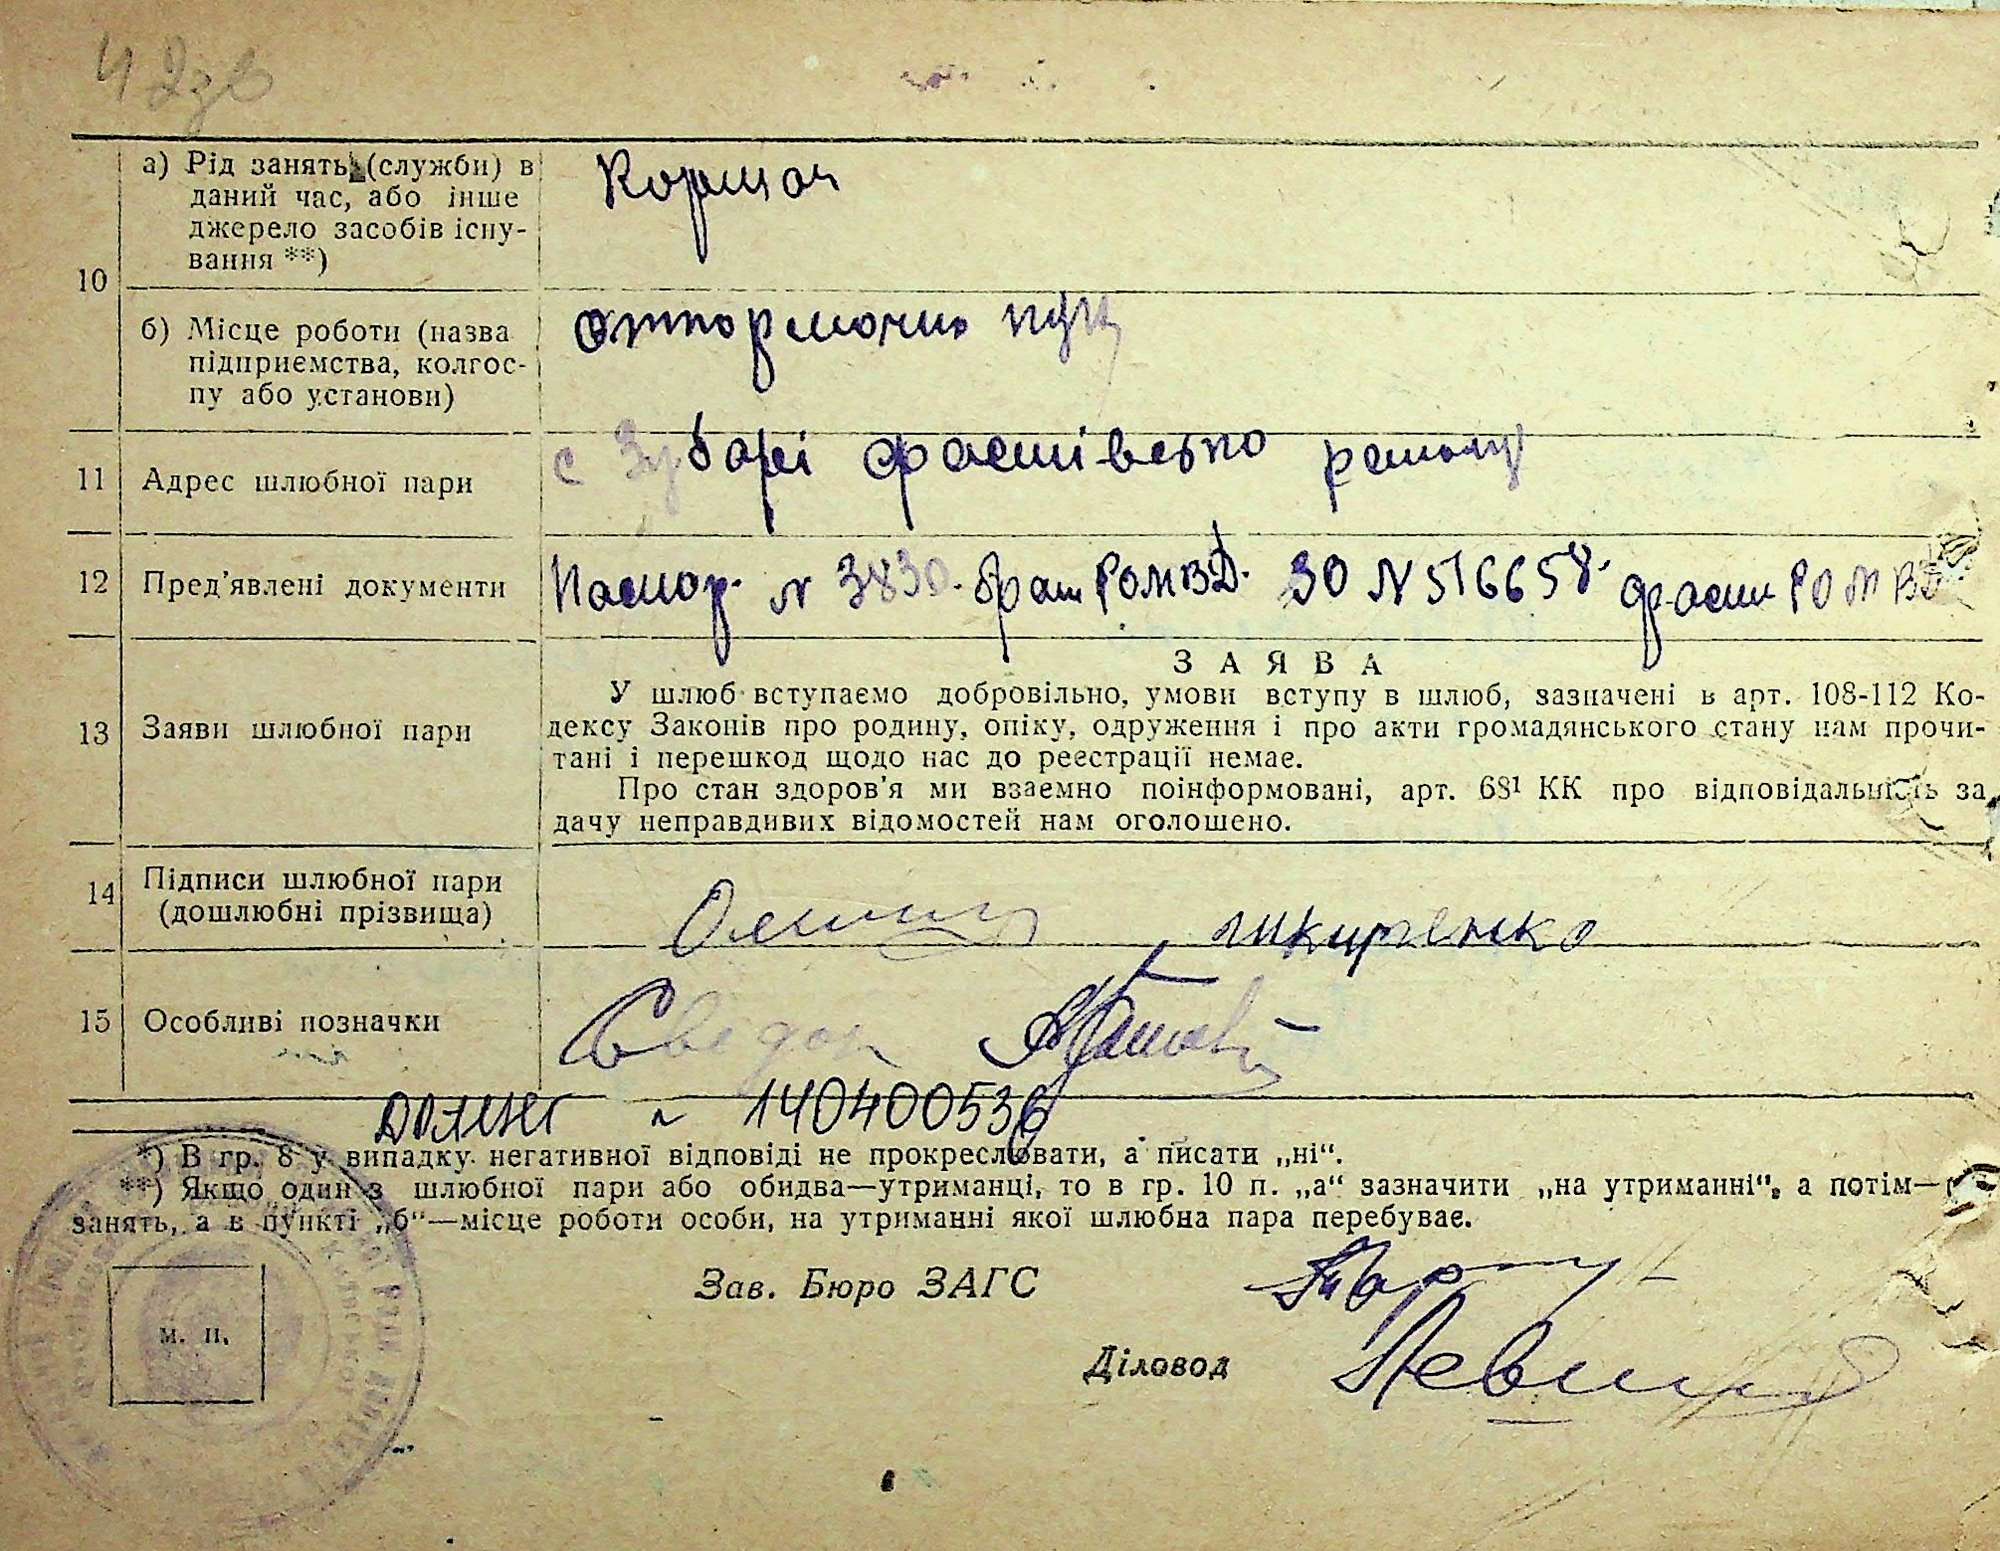 10
а) Рід занять (служби) в
даний час, або інше
джерело засобів існу-
вання **)
Кормач
б) Місце роботи (назва
підприємства, колгос-
пу або установи)
откормочно пун
11 Адрес шлюбної пари
с Зубарі фастівсько району
12 Пред'явлені документи
Паспор. N 3830. фаст РОМВД. ЗО N 516658. фасти РОМВД
ЗАЯВА
13 Заяви шлюбної пари
У шлюб вступаємо добровільно, умови вступу в шлюб, зазначені в арт. 108-112 Ко-
дексу Законів про родину, опіку, одруження і про акти громадянського стану нам прочи-
тані і перешкод щодо нас до реєстрації немає.
Про стан здоров'я ми взаємно поінформовані, арт. 68¹ КК про відповідальність за
дачу неправдивих відомостей нам оголошено.
14 Підписи шлюбної пари
(дошлюбні прізвища)
15 Особливі позначки
N 140400536
*) В гр. 8 у випадку негативної відповіді не прокреслювати, а писати „ні“.
**) Якщо один з шлюбної пари або обидва—утриманці, то в гр. 10 п. „а“ зазначити „на утриманні“, а потім—
занять, а в пункті „б“—місце роботи особи, на утриманні якої шлюбна пара перебуває.
Зав. Бюро ЗАГС
м. п.
Діловод